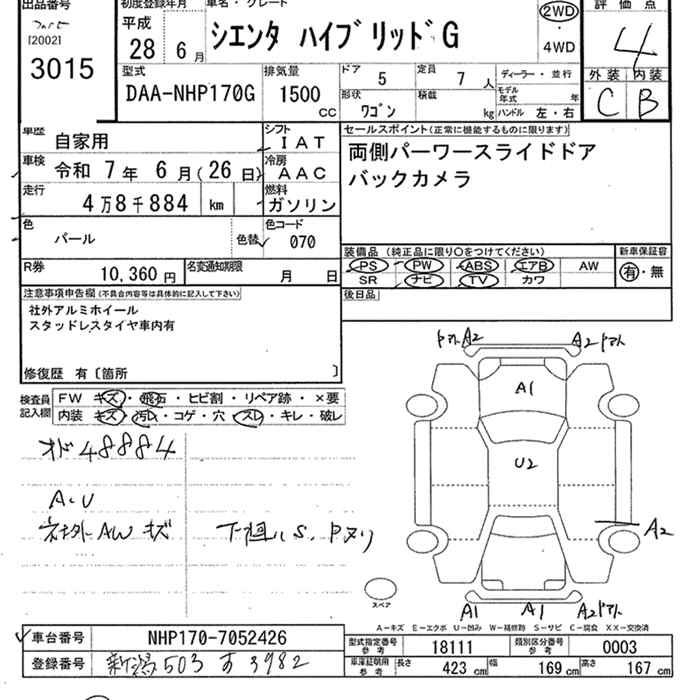 出品番号
[2002]
3015
初度登録年月
平成
28 6月
車名・グレード
シエンタ ハイブリッド G
2WD
・
4WD
評価点
4
外装 内装
C B
型式
DAA-NHP170G
排気量
1500
CC
ドア 5
定員 7 人
形状 ワゴン
積載 kg
ディーラー・並行
モデル年式 年
ハンドル 左・右
車歴 自家用
シフト IAT
車検 令和 7年 6月(26日)
冷房 AAC
走行 4万8千884 km
燃料 ガソリン
色 パール
色替
色コード 070
R券 10,360円
名変通知期限 月 日
セールスポイント(正常に機能するものに限ります)
両側パーワースライドドア
バックカメラ
装備品(純正品に限り〇をつけてください)
新車保証書
PS PW ABS エアB AW
SR ナビ TV カワ
有・無
後日品
注意事項申告欄(不具合内容等は具体的に記入して下さい)
社外アルミホイール
スタッドレスタイヤ車内有
修復歴 有〔箇所 〕
検査員記入欄
FW キズ・飛石・ヒビ割・リペア跡・×要
内装 キズ・汚れ・コゲ・穴・スレ・キレ・破レ
オド 48884
A・U
社外AW キズ
下廻り S、Pヌリ
Pマト A2
A2 Pマト
A1
U2
A2
A1 A1 A2 Pマト
スペア
A-キズ E-エクボ U-凹み W-補修跡 S-サビ C-腐食 XX-交換済
車台番号 NHP170-7052426
登録番号 新潟 503 す 3982
型式指定番号 参考 18111
類別区分番号 参考 0003
車庫証明用 参考 長さ 423 cm 幅 169 cm 高さ 167 cm